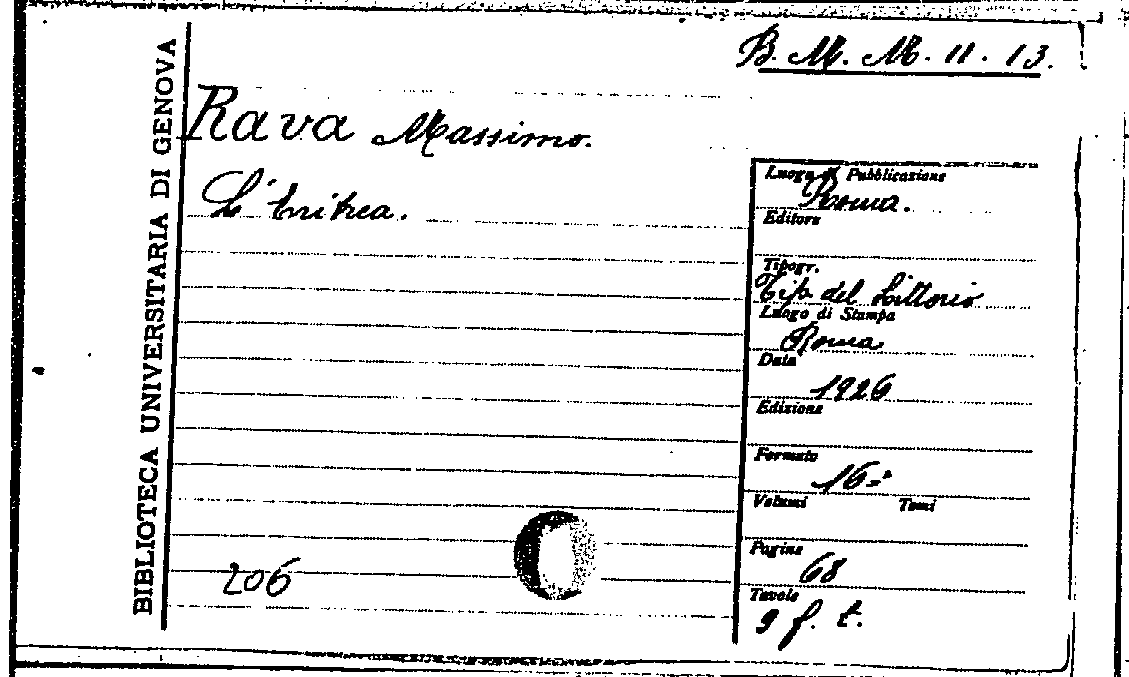 BIBLIOTECA UNIVERSITARIA DI GENOVA
B. M. M. 11. 13.
Rava Massimo.
L'Eritrea.
Luogo di Pubblicazione
Roma.
Editore
Tipogr.
Tip del Littorio
Luogo di Stampa
Roma
Data
1926
Edizione
Formato
16=°
Volumi Tomi
Pagine
68
Tavole
9 f. t.
206